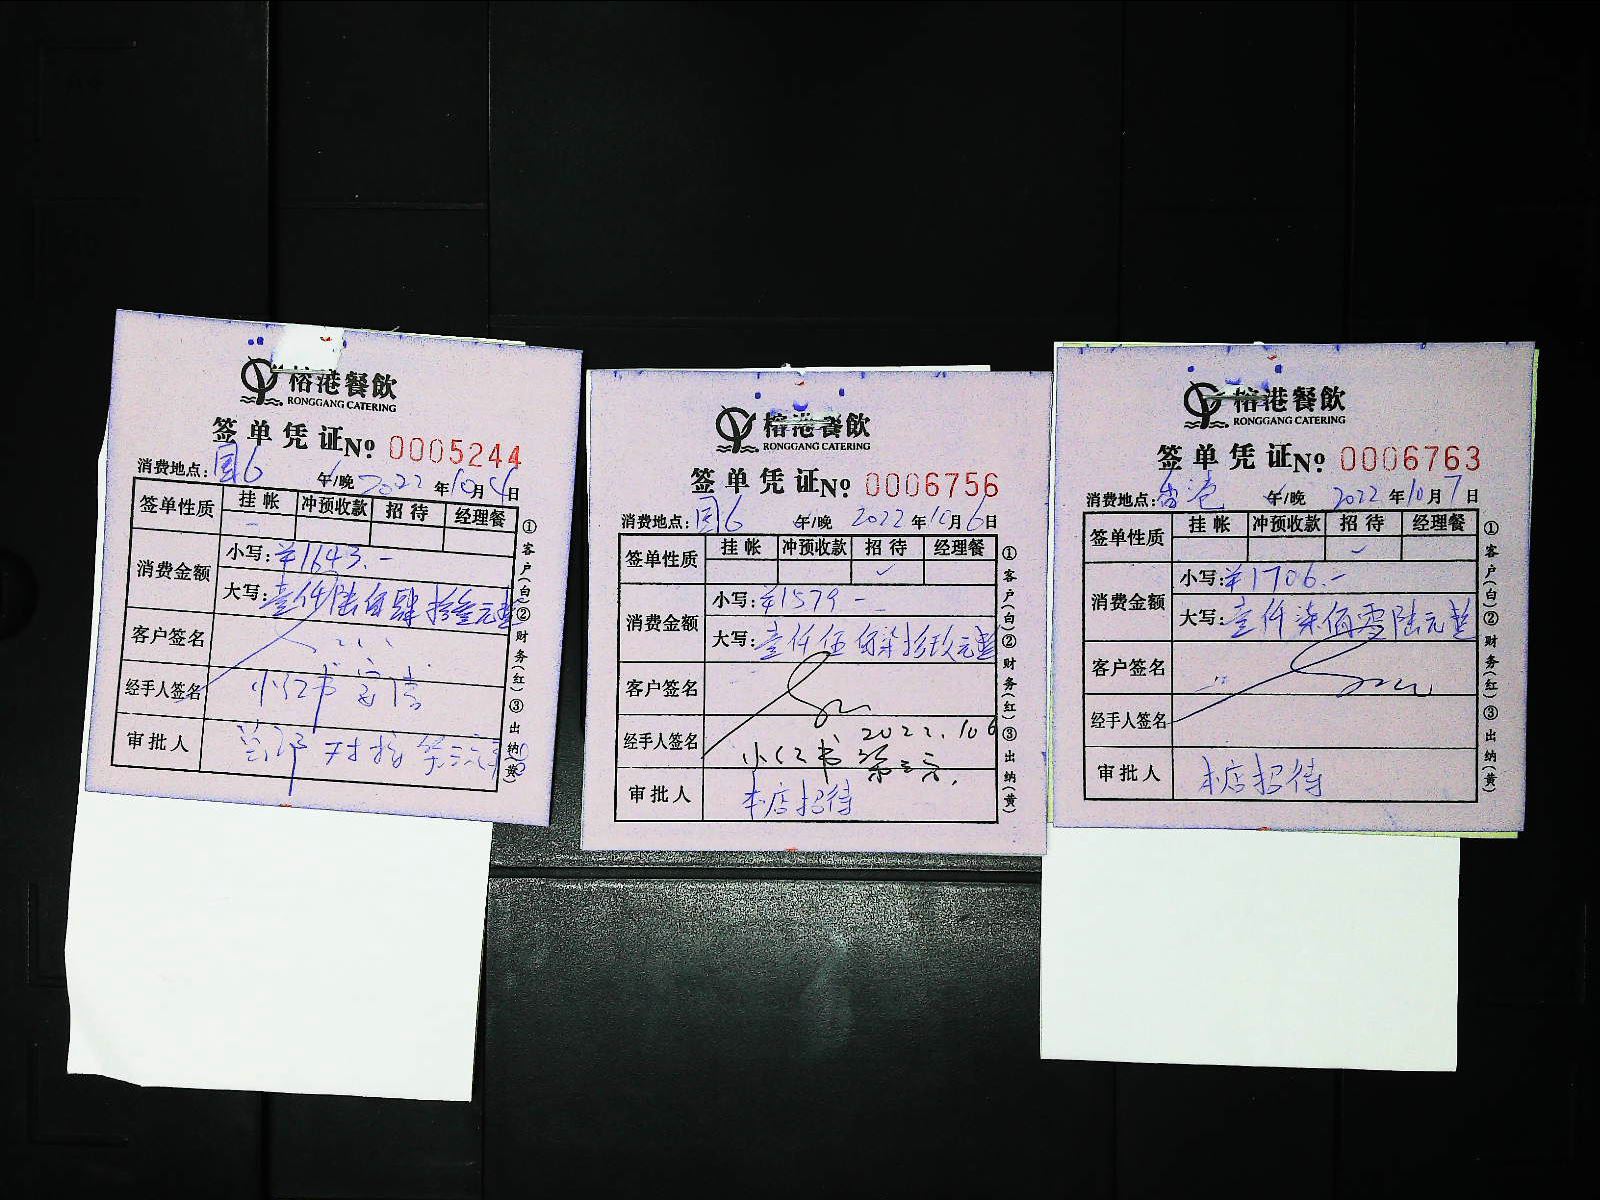 榕港餐飲
RONGGANG CATERING
签单凭证 № 0005244
消费地点: 国6 午/晚 2022年10月4日
签单性质 挂帐 冲预收款 招待 经理餐
消费金额
小写: ¥1643.-
大写: 壹仟陆佰肆拾叁元整
客户签名
经手人签名 小红书
审批人
①客户(白)②财务(红)③出纳(黄)
榕港餐飲
RONGGANG CATERING
签单凭证 № 0006756
消费地点: 国6 午/晚 2022年10月6日
签单性质 挂帐 冲预收款 招待 经理餐
✓
消费金额
小写: ¥1579-
大写: 壹仟伍佰柒拾玖元整
客户签名
2022.10.6
经手人签名 小红书
审批人 本店招待
①客户(白)②财务(红)③出纳(黄)
榕港餐飲
RONGGANG CATERING
签单凭证 № 0006763
消费地点: 香港 午/晚 2022年10月7日
签单性质 挂帐 冲预收款 招待 经理餐
✓
消费金额
小写: ¥1706.-
大写: 壹仟柒佰零陆元整
客户签名
经手人签名
审批人 本店招待
①客户(白)②财务(红)③出纳(黄)